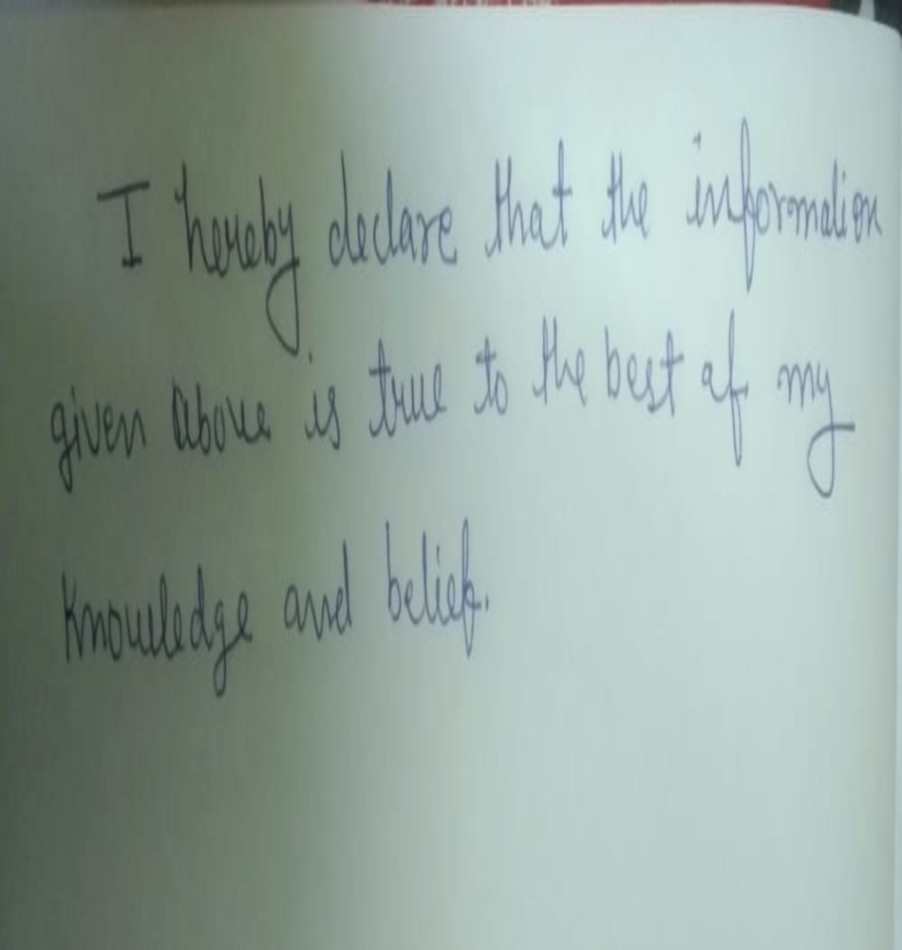 I hereby declare that the information
given above is true to the best of my
knowledge and belief.